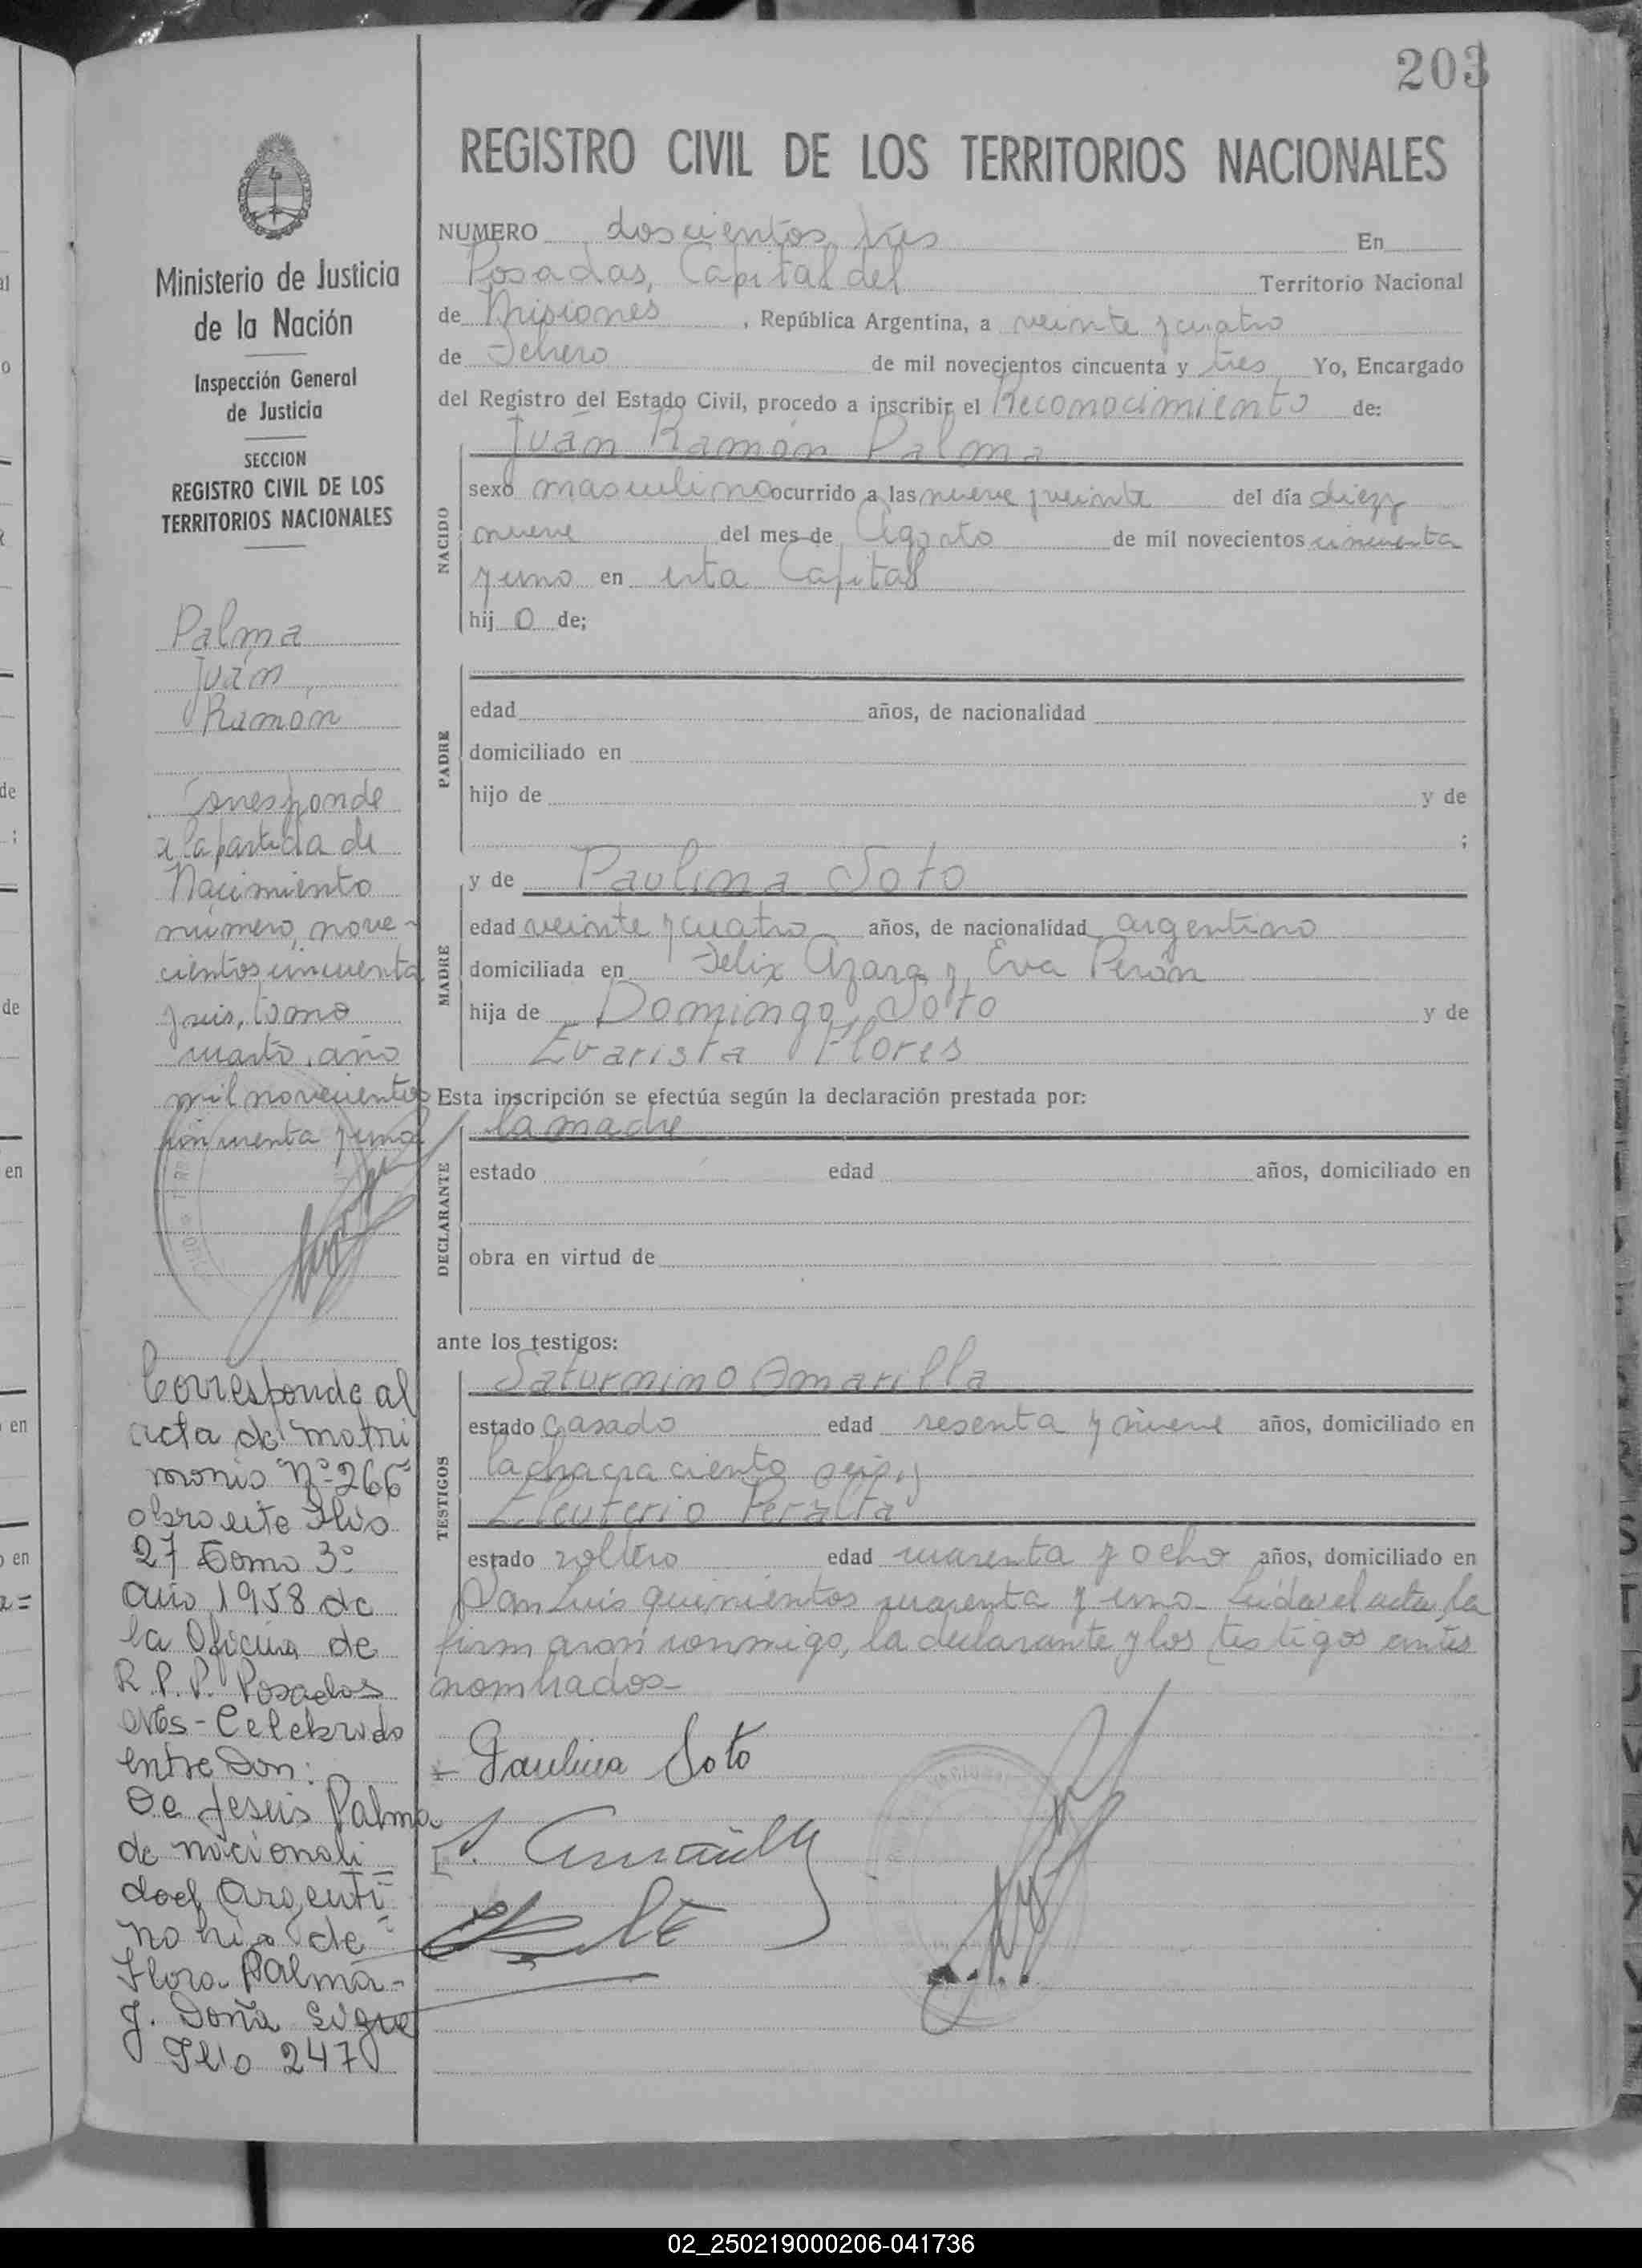 203
REGISTRO CIVIL DE LOS TERRITORIOS NACIONALES
Ministerio de Justicia
de la Nación
Inspección General
de Justicia
SECCION
REGISTRO CIVIL DE LOS
TERRITORIOS NACIONALES
Palma
Juán
Ramón
Corresponde
a la partida de
Nacimiento
número, nove-
cientos cincuenta
y seis, tomo
cuarto, año
mil novecientos
cincuenta y uno
Corresponde al
acta de matri
monio Nº 266
obra este folio
27 Tomo 3º
año 1958 de
la Oficina de
R.P.P. Posadas
Celebrado
entre Don:
De Jesús Palma
de nacionali
dad Argenti
no hijo de
Flora Palma-
y. Doña sigue
Folio 247
NUMERO doscientos tres En
Posadas, Capital del Territorio Nacional
de Misiones, República Argentina, a veinte y cuatro
de Febrero de mil novecientos cincuenta y tres Yo, Encargado
del Registro del Estado Civil, procedo a inscribir el Reconocimiento de:
Juán Ramón Palma
NACIDO
sexo masculino ocurrido a las nueve y veinte del día diez y
nueve del mes de Agosto de mil novecientos cincuenta
y uno en esta Capital
hijo de;
PADRE
edad años, de nacionalidad
domiciliado en
hijo de y de
;
MADRE
y de Paulina Soto
edad veinte y cuatro años, de nacionalidad argentino
domiciliada en Felix Azara y Eva Perón
hija de Domingo Soto y de
Evarista Flores
Esta inscripción se efectúa según la declaración prestada por:
la madre
DECLARANTE
estado edad años, domiciliado en
obra en virtud de
ante los testigos:
TESTIGOS
Saturnino Amarilla
estado casado edad sesenta y nueve años, domiciliado en
la chacra ciento seis, y
Eleuterio Peralta
estado soltero edad cuarenta y ocho años, domiciliado en
San Luis quinientos cuarenta y uno. Leída el acta, la
firmaron conmigo, la declarante y los testigos antes
nombrados
Paulina Soto
S. Amarilla
02_250219000206-041736